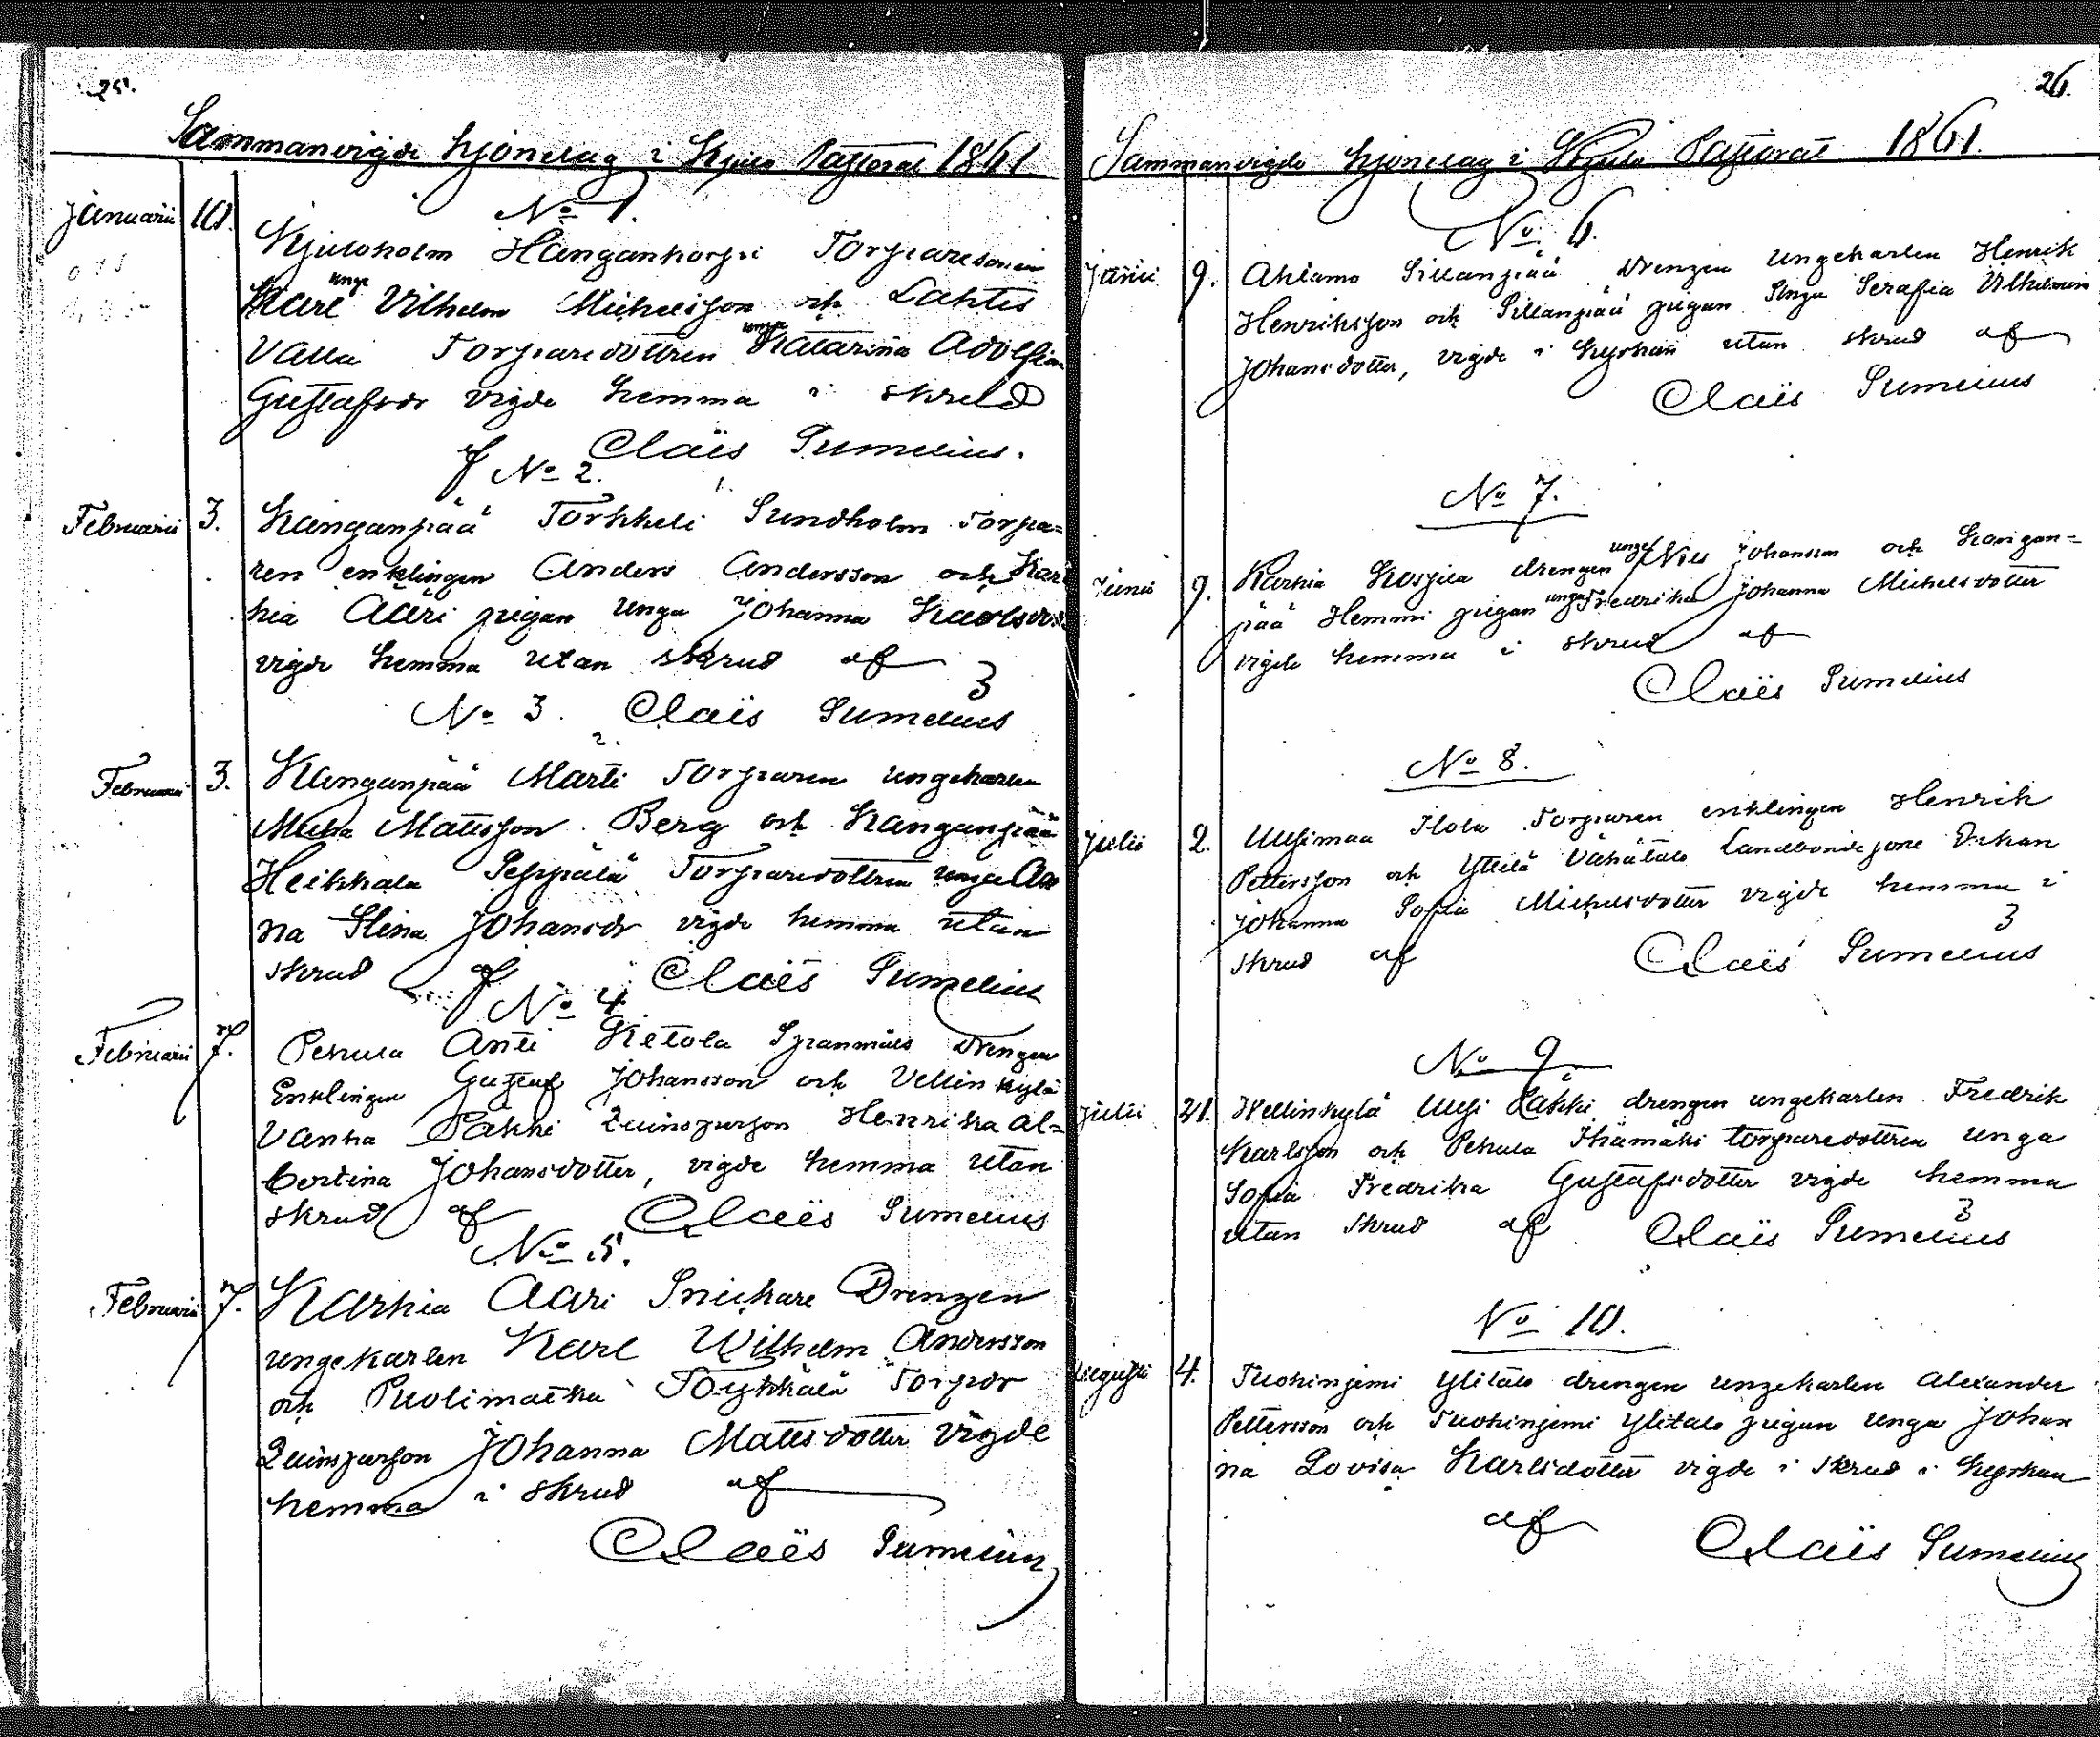 25.
Sammanvigde hjonelag i Kjulo Pastorat 1861
Januarii 10.
No 1.
Kjuloholm Hangankorpi Torparesonen
unge
Karl Vilhelm Michelsson och Lahtis
unga
Valla Torparedottren Katarina Adolfina
Gustafsdr vigde hemma i skrud
af Claës Sumelius.
No 2.
Februarii 3. Kanganpää Torkkeli Sundholm Torpa=
ren enklingen Anders Andersson och Kar
hia Aari pigan unga Johanna Karlsdr
vigde hemma utan skrud af
No 3. Claës Sumelius
Februarii 3. Kanganpää Marti Torparen ungekarlen
Mattsson Berg och Kanganpää
Heikkala Seppälä Torparedottren unga An
na Stina Johansdr vigde hemma utan
skrud af Claës Sumelius
No 4
Februarii 7. Pehula Anti Ketola Spanmåls Drengen
Enklingen Gustaf Johansson och Vellinkylä
Vanha Däkki Quinspurson Henrika Al=
bertina Johansdotter, vigde hemma utan
skrud af Claës Sumelius
No 5.
Februarii 7. Karhia Aari Snickare Drengen
ungekarlen Karl Wilhelm Andersson
och Puolimatka Töykkälä Torpor
Quinspurson Johanna Mattsdotter vigde
hemma i skrud af
Claës Sumelius
26.
Sammanvigde hjonelag i Kjulo Pastorat 1861.
No 6.
Junii 9. Ahlamo Sillanpää Drengen ungekarlen Henrik
Henriksson och Sillanpää pigan Unga Serafia Vilhelmin
Johansdotter, vigde i kyrkan utan skrud af
Claës Sumelius
No 7.
unge
Junii 9. Karhia Kospila drengen Nils Johansson och Kangan=
unga
pää Hemmi pigan Fredrika Johanna Michelsdotter
vigde hemma i skrud af
Claës Sumelius
No 8.
Julii 2. Uusimaa Ilola Torparen enklingen Henrik
Pettersson och Yttilä Vähätalo Landbonde
Johanna Sofia Michelsdotter vigde hemma i
skrud af Claës Sumelius
No 9
Julii 21. Vellinkylä Uusi Däkki drengen ungekarlen Fredrik
Karlsson och Pehula Ihamäki torparedottren unga
Sofia Fredrika Gustafsdotter vigde hemma
utan skrud af Claës Sumelius
No 10.
Augusti 4. Tuohinjemi Ylitalo drengen ungekarlen Alexander
Pettersson och Tuohinjemi Ylitalo pigan unga Johan
na Lovisa Karlsdotter vigde i skrud i kyrkan
af Claës Sumelius